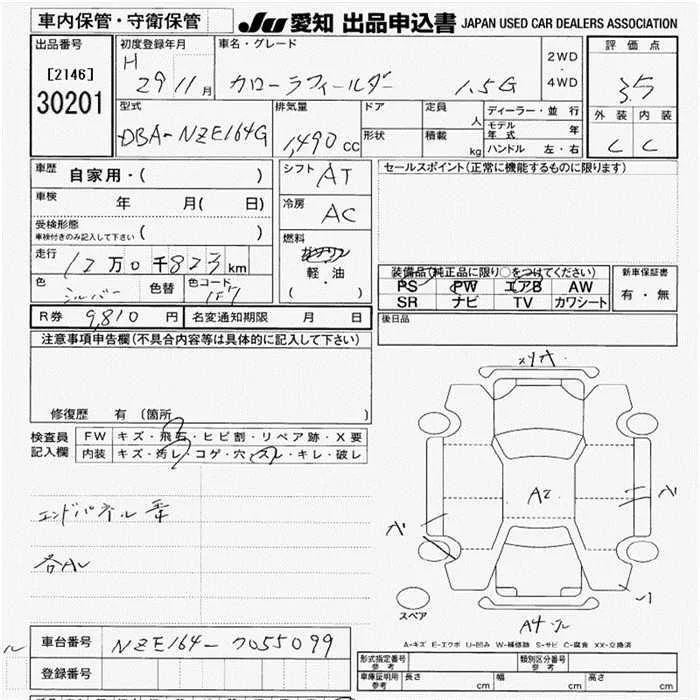 車内保管・守衛保管
JU 愛知 出品申込書 JAPAN USED CAR DEALERS ASSOCIATION
出品番号
[2146]
30201
初度登録年月
H 29 11 月
車名・グレード
カローラフィールダー 1.5G
2WD
・
4WD
評価点
3.5
外装 内装
C C
型式
DBA-NZE164G
排気量
1,490 cc
ドア
形状
定員 人
積載 kg
ディーラー・並行
モデル年式 年
ハンドル 左・右
車歴 自家用・( )
車検 年 月( 日)
受検形態
車検付きのみ記入して下さい ( )
走行 12万0千823km
色 シルバー 色替 色コード 1F7
シフト AT
冷房 AC
燃料
ガソリン
軽・油
( )
セールスポイント(正常に機能するものに限ります)
装備品(純正品に限り○をつけてください)
PS PW エアB AW
SR ナビ TV カワシート
新車保証書
有・無
R券 9,810 円 名変通知期限 月 日
後日品
注意事項申告欄(不具合内容等は具体的に記入して下さい)
修復歴 有 (箇所 )
検査員記入欄
FW キズ・飛石・ヒビ割・リペア跡・X要
内装 キズ・汚レ・コゲ・穴・スレ・キレ・破レ
エンドパネル
A2
スペア
A-キズ E-エクボ U-凹み W-補修跡 S-サビ C-腐食 XX-交換済
車台番号 NZE164-7055099
登録番号
形式指定番号 参考
類別区分番号 参考
車庫証明用 参考 長さ cm 幅 cm 高さ cm